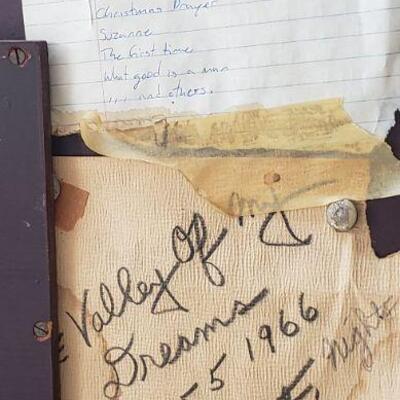 Christmas Prayer
Suzanne
The first time
What good is a man
... and others.
Valley Of My
Dreams
5 1966
Nights